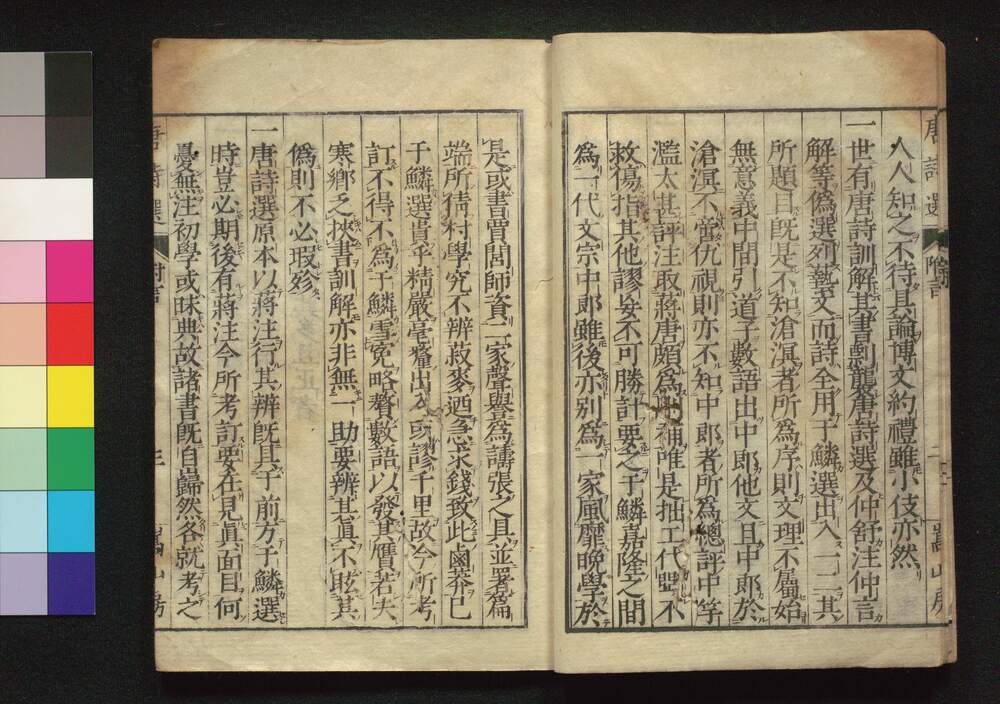 人人知之不待具論博文約禮雖小伎亦然
一世有唐詩訓解其書剽襲唐詩選及仲舒注仲言
解等偽選列藝文而詩全用于鱗選出入一二其
所題目既是不知滄溟者所為序則文理不屬始
無意義中間引道子數語出中郎他文且中郎於
滄溟不啻仇視則亦不知中郎者所為總評中竽
濫太甚評注取蔣唐頗為補唯是拙工代斲不
救傷指其他謬妄不可勝計要之于鱗嘉隆之間
為一代文宗中郎雖後亦別為一家風靡晚學於
唐詩選
附言
嵩山房
是或書曾閭師資二家聲譽為譸張之具並署篇
端所倩村學究不辨菽麥迺急求錢致此鹵莽已
于鱗選貴乎精嚴毫釐出入或謬千里故今所考
訂不得不為于鱗雪冤略贅數語以發其贋若夫
寒鄉乏挾書訓解亦非無一助要辨其真不眩其
偽則不必瑕殄
一唐詩選原本以蔣注行其辨既具于前方于鱗選
時豈必期後有蔣注今所考訂要在見真面目何
憂無注初學或昧典故諸書既自歸然各就考之
唐詩選
附言
三
嵩山房